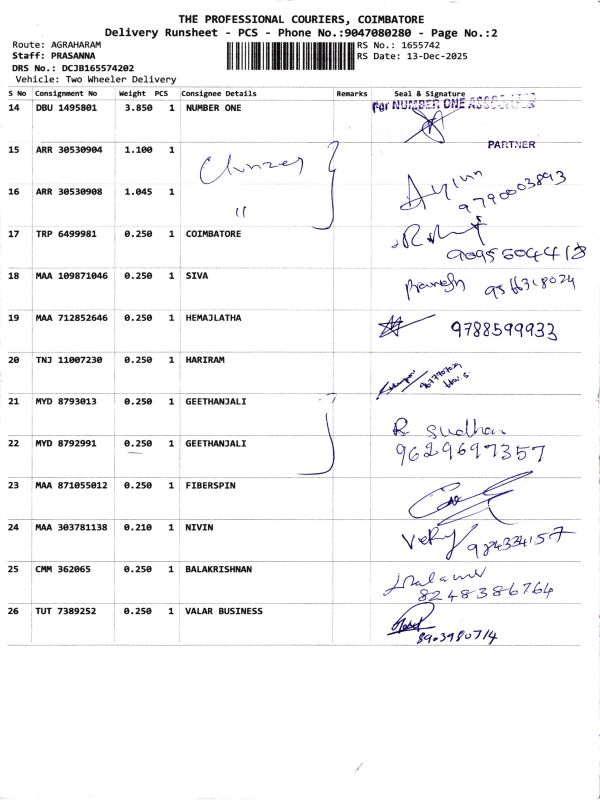 THE PROFESSIONAL COURIERS, COIMBATORE
Delivery Runsheet - PCS - Phone No.:9047080280 - Page No.:2
Route: AGRAHARAM
RS No.: 1655742
Staff: PRASANNA
RS Date: 13-Dec-2025
DRS No.: DCJB165574202
Vehicle: Two Wheeler Delivery
S No Consignment No Weight PCS Consignee Details Remarks Seal & Signature
14 DBU 1495801 3.850 1 NUMBER ONE For NUMBER ONE
PARTNER
15 ARR 30530904 1.100 1
16 ARR 30530908 1.045 1 "
9790003893
17 TRP 6499981 0.250 1 COIMBATORE
9095604418
18 MAA 109871046 0.250 1 SIVA Pramesh 9566318024
19 MAA 712852646 0.250 1 HEMAJLATHA 9788599933
20 TNJ 11007230 0.250 1 HARIRAM
21 MYD 8793013 0.250 1 GEETHANJALI
R Sudhan
22 MYD 8792991 0.250 1 GEETHANJALI 9629697357
23 MAA 871055012 0.250 1 FIBERSPIN
24 MAA 303781138 0.210 1 NIVIN
25 CMM 362065 0.250 1 BALAKRISHNAN
8248386764
26 TUT 7389252 0.250 1 VALAR BUSINESS